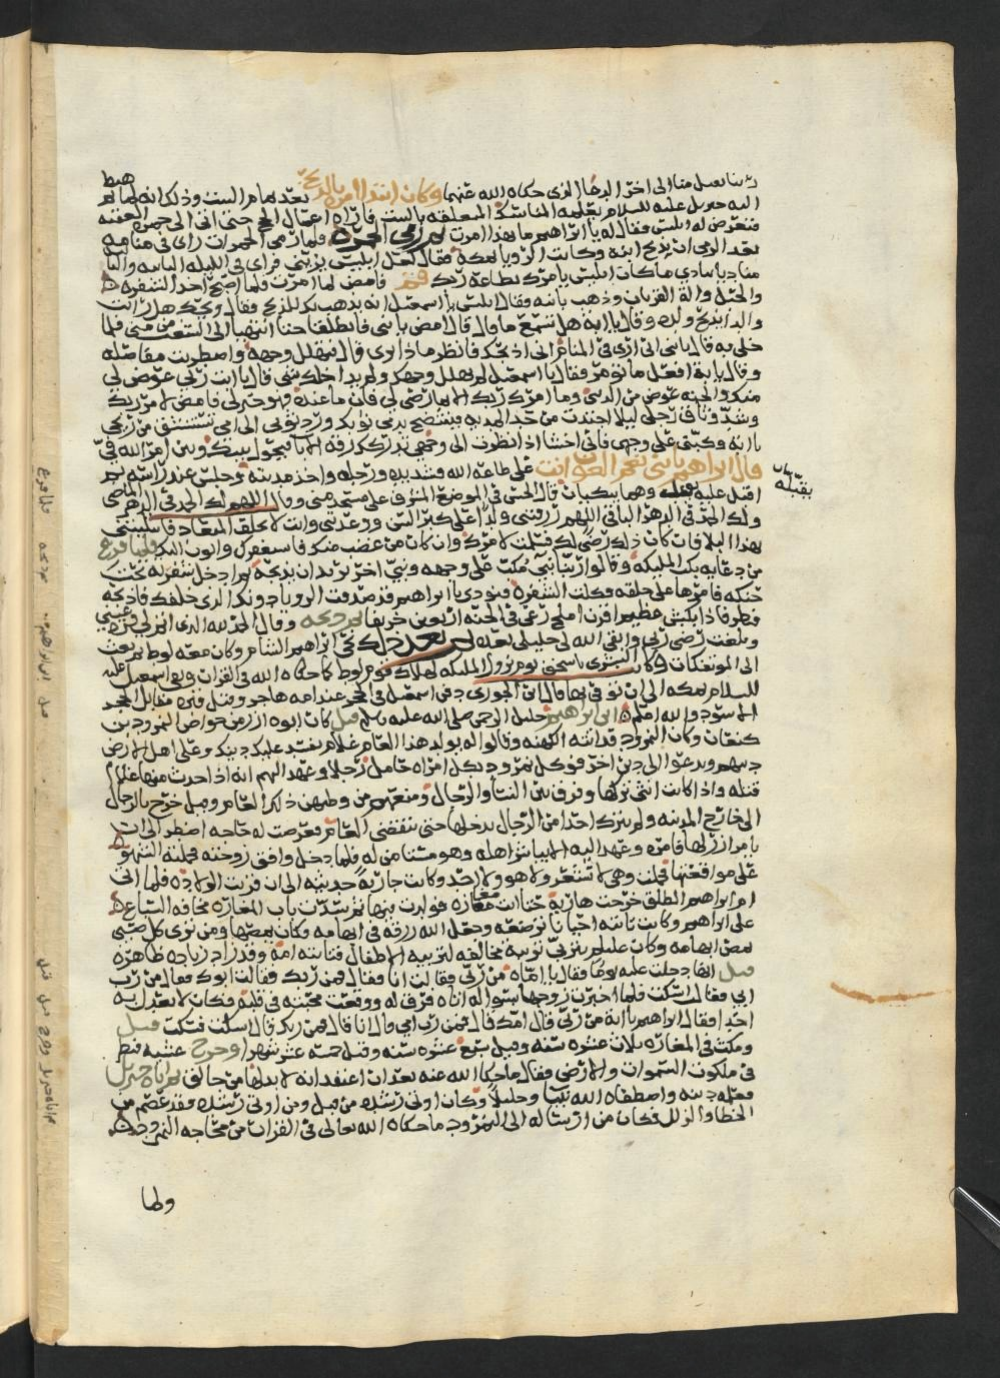 ربنا تقبل منا الى اخر الدعا الذى حكاه الله عنهما وكان ابتدا امره بالذبح بعد تمام البيت وذلك انه لما تم هبط
اليه جبريل عليه السلام يعلمه المناسك المتعلقه بالبيت فاراه اعمال الحج حتى اتى الى جمرة العقبه
فتعرض له ابليس فقال له يا ابراهيم ما بهذا امرت ثم رمى الجمره فلما رمى الجمرات راى فى منامه
بعد الرمى ان يذبح ابنه وكانت الرويا بمكه فقال لعل ابليس يريني فراى فى الليله الثانيه والثا
مناديا ينادى ما كان ابليس يامرك بطاعة ربك قم فامض لما امرت فلما اصبح اخذ الشفره
والحبل والة القربان وذهب بابنه فقال ابليس يا اسمعيل انه يذهب بك للذبح فقال ويحك هل رايت
والدا يذبح ولده وقال يا ابة هل تسمع ما قال قال امض يا بنى فانطلقا حتى انتهيا الى الشعب من منى فلما
خلى به قال يا بنى انى ارى فى المنام انى اذبحك فانظر ماذا ترى قال فتهلل وجهه واضطربت مفاصله
وقال يا ابة افعل ما تومر فقال يا اسمعيل لم تهلل وجهك ولم يداخلك شى قال يا ابت ربى عوض لى
منك والجنه عوض من الدنيا وما امرك ربك الا بما رضى لى فان ما عنده هو خير لى فامض لامر ربك
وشد وثاق رجلى ليلا اجتذب من حد المديه فينتضح بدى ثوبك ورد ثوبى الى امى تستنشق من ريحى
يا ابه وكبنى على وجهى فانى اخشا اذا نظرت الى وجهى تدركك رقة الابا فيحول بينك وبين امر الله فى
قال ابراهيم يا بنى نعم العون انت على طاعة الله فشد يديه ورجليه واخذ مديته وجلس عند راسه ثم
اقبل عليه يقبله وهما يبكيان قال الحسن فى الموضع المشرف على مسجد منى وقال اللهم لك الحمد فى الدهر الماضى
ولك الحمد فى الدهر الباقى اللهم رزقتنى ولدا على كبر السن ووعدتنى وانت لا تخلف الميعاد فابتليتنى
بهذا البلا فان كان ذلك رضى لك فبلت لامرك وان كان من غضب منك فاستغفرك واتوب اليك فلما فرغ
من دعايه بكت المليكه وقالوا ربنا نبى مكب على وجهه ونبى اخر يريد ان يذبحه ثم ادخل شفرته تحت
حنكه فامرها على حلقه فكلت الشفره فنودى يا ابراهيم قد صدقت الرويا دونك الذى خلفك فاذبحه
فنظر فاذا بكبش عظيم اقرن املح رعى فى الجنه اربعين خريفا ثم ذبحه وقال الحمد لله الذى
وبلغت رضى ربى وابقى الله لى خليلى بعده ثم بعد ذلك نحى ابراهيم الشام وكان معه لوط ثم بعث
الى الموتفكات وكان البشرى باسحق يوم نزول المليكه لهلاك قوم لوط كما حكاه الله فى القران وبقى اسمعيل عليه
السلام بمكه الى ان توفى بها قال ابن الجوزى دفن اسمعيل فى الحجر عند امه هاجر وقيل قبره مقابل الحجر
الاسود والله اعلم ابن ابراهيم خليل الرحمن صلى الله عليه وسلم قيل كان ابوه ازر من خواص النمرود بن
كنعان وكان النمرود قد اتته الكهنه وقالوا له يولد هذا العام غلام يفسد عليك دينك وعلى اهل الارض
دينهم ويدعو الى دين اخر فوكل نمرود بكل امراه حامل رجلا وعهد اليهم انه اذا احدث منها غلاما
قتله واذا كانت انثى تركها وفرق بين النسا والرجال ومنعهم من وطيهن ذلك العام وقيل خرج بالرجال
الى خارج المدينه ولم يترك احدا من الرجال يدخلها حتى ينقضى العام فعرضت له حاجه اضطر الى ان
يامر ازر لها فامره وعهد اليه الا بياتوا هله وهو مستامن له فلما دخل وافق زوجته فحملته الشهوه
على مواقعتها فحملت وهى لا تشعر ولا هو ولا احد وكانت جاريه حديثه الى ان قربت الولاده فلما اتى
ام ابراهيم الطلق خرجت هاربه حتى اتت مغاره فولدت بها ثم سدت باب المغاره مخافه السباع
على ابراهيم وكانت تاتيه احيانا ترضعه وجعل الله رزقه فى ابهامه وكان يمصها ومن ثوى كل صبى
يمص ابهامه وكان عليلم يتربى تربيه مخالفه لتربيه الاطفال فتاتيه امه وقد زاد زياده ظاهره
قيل انها دخلت عليه يوما فقال يا اماه من ربى فقالت انا فقال فمن ربك فقالت ابوك فقال من رب
ابى فقالت اسكت فلما اخبرت زوجها بشوا له اتاه فرق له ووقعت محبته فى قلبه فكان لا يعدل به
احدا فقال ابراهيم يا ابة من ربى قال امك قال فمن رب امى قال انا قال فمن ربك قال اسكت فسكت قيل
ومكث فى المغاره ثلاث عشره سنه وقيل سبع عشره سنه وقيل خمسه عشر شهرا وخرج عشيه فنظر
فى ملكوت السموات والارض فقال ما حكى الله عنه بعد ان اعتقد انه لا بد لها من خالق ثم اتاه جبريل
فعلمه دينه واصطفاه الله نبيا وخليلا وكان اوتى رشده من قبل ومن اوتى رشده فقد عصم من
الخطا والزلل فكان من ارساله الى النمرود ما حكاه الله تعالى فى القران من محاجه النمرود
بقبله
ولما